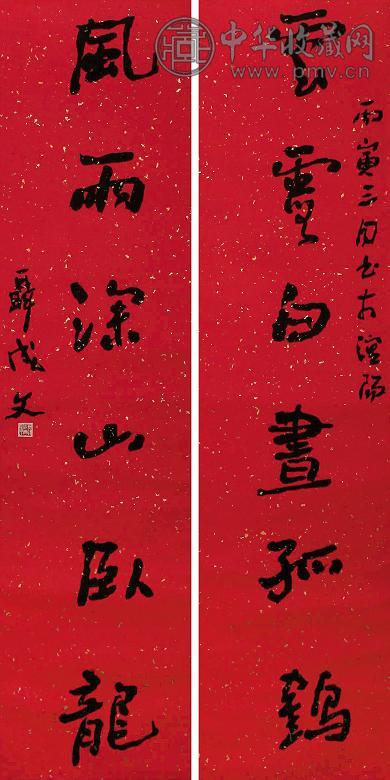 丙寅三月書於瀋陽
雲霄白晝孤鶴
風雨深山臥龍
聶成文
中华收藏网
www.pmv.cn